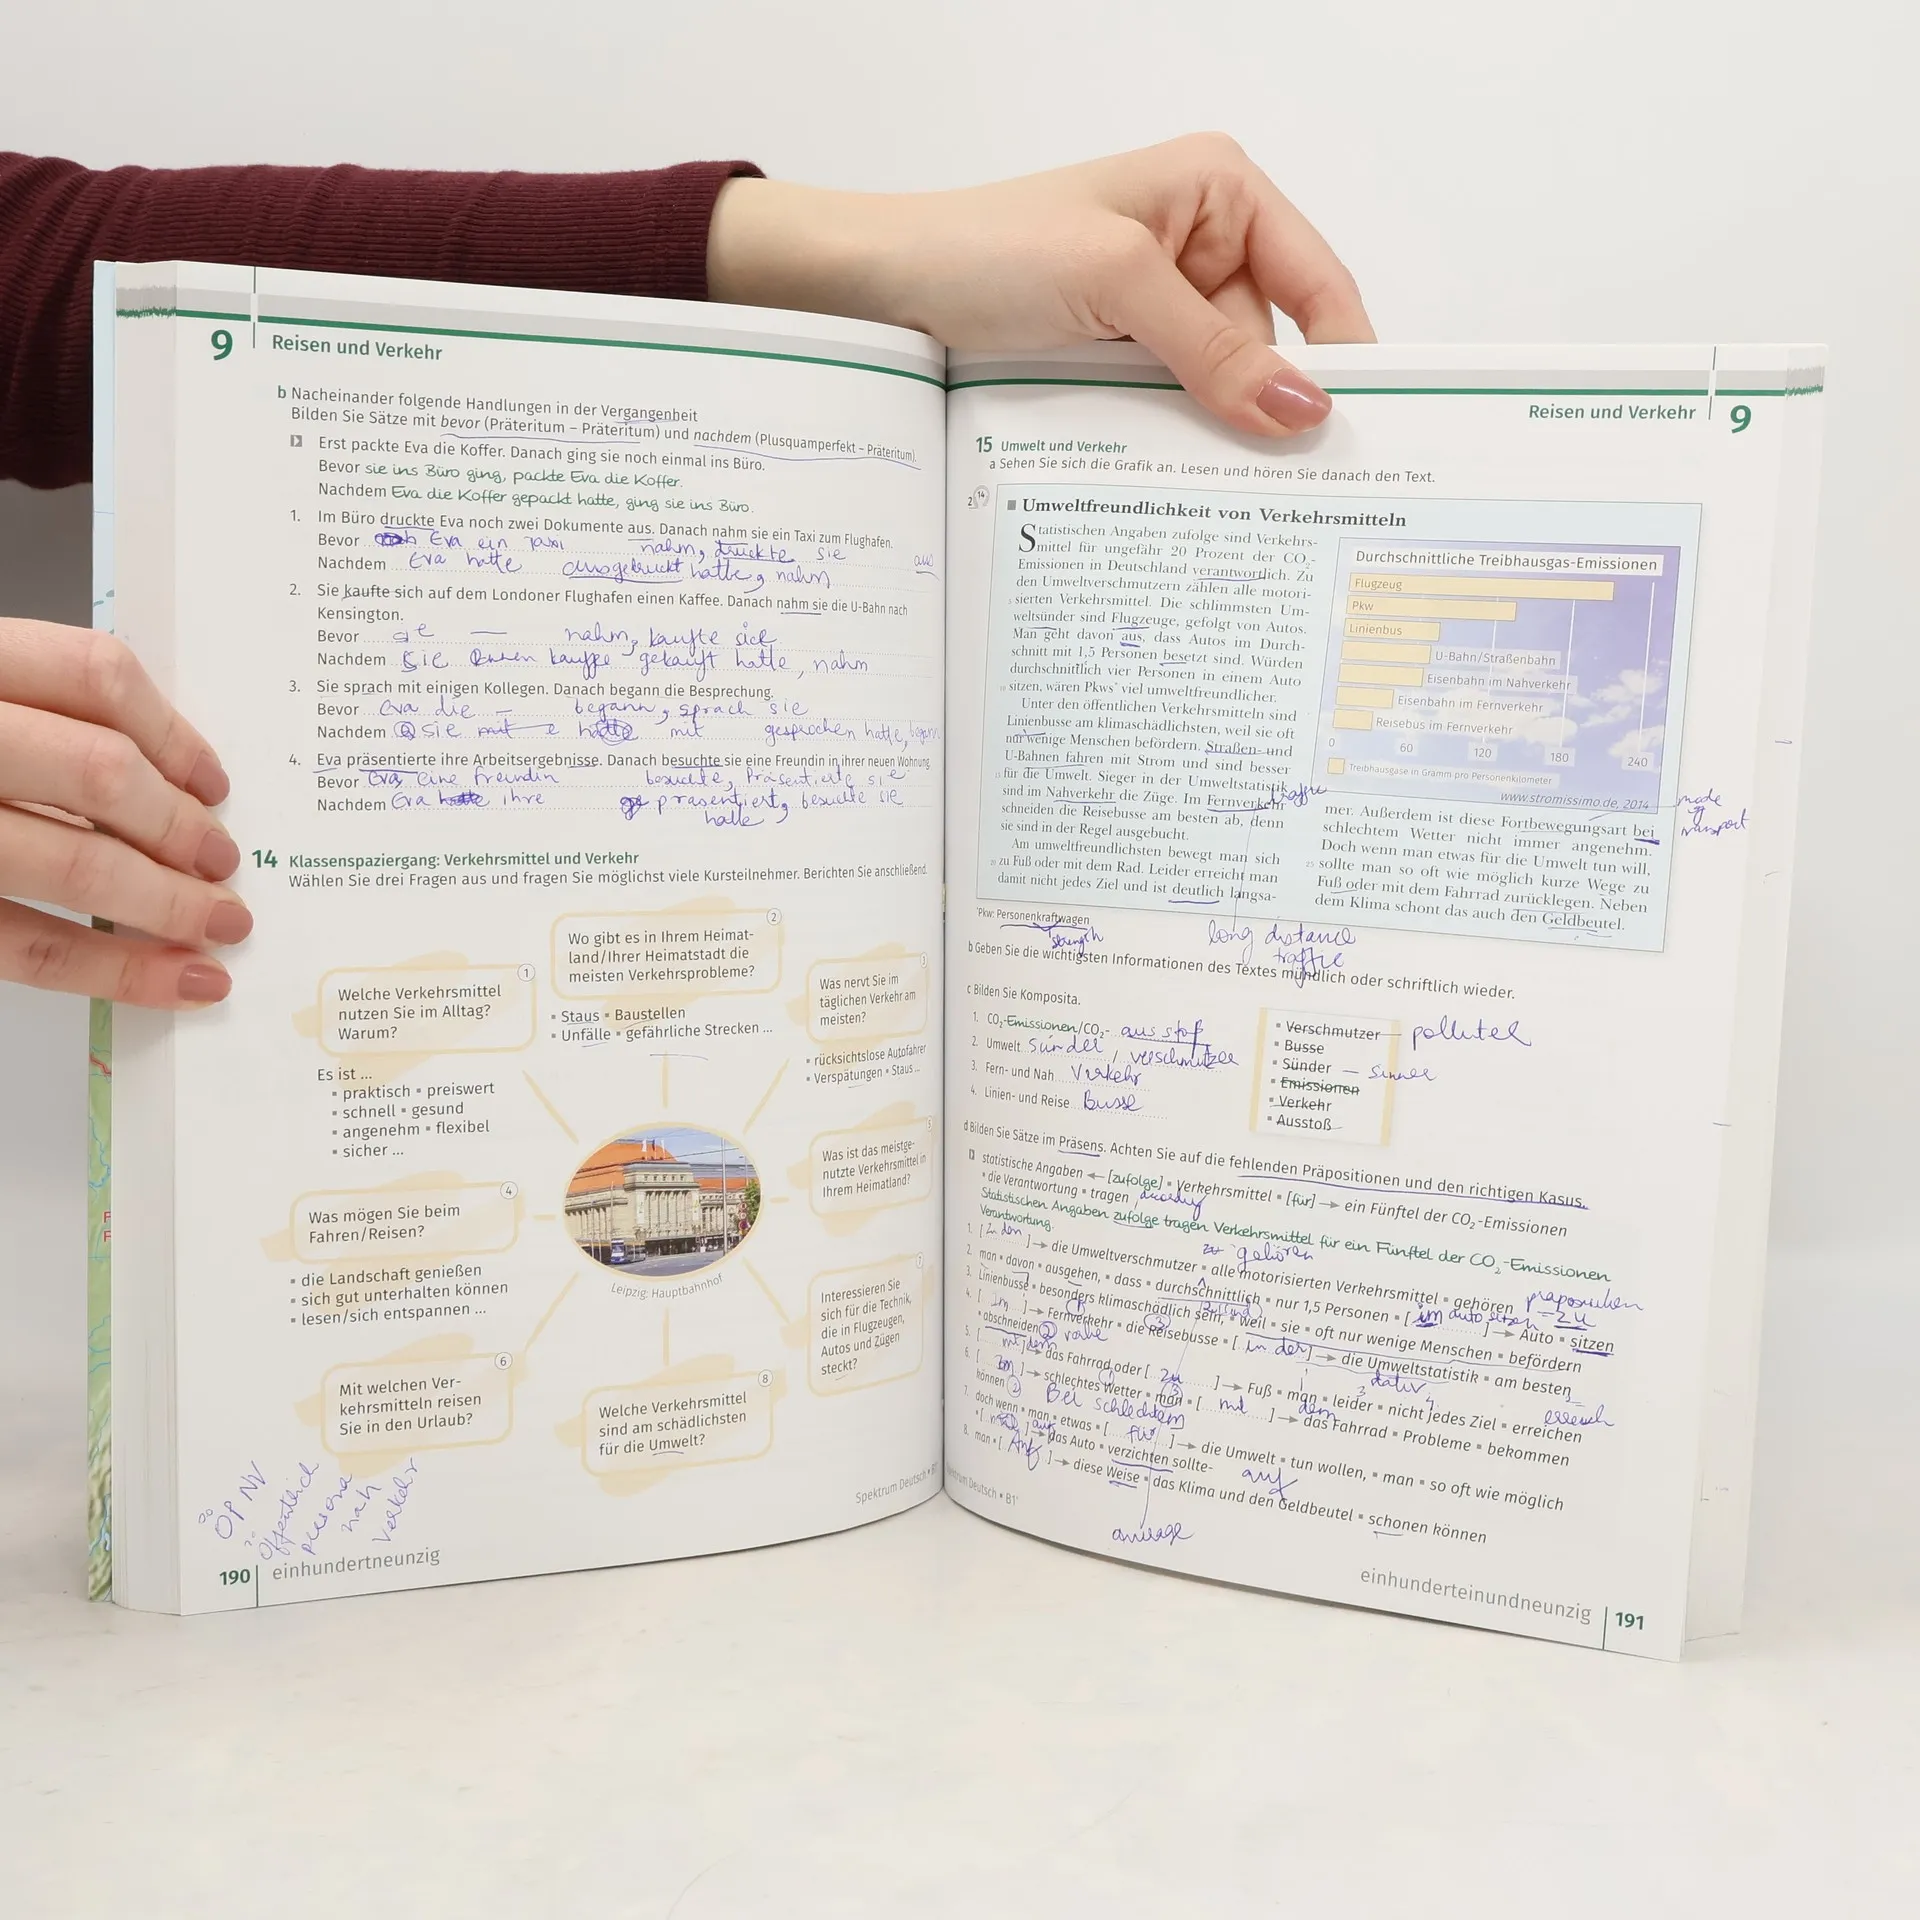 9 Reisen und Verkehr
b Nacheinander folgende Handlungen in der Vergangenheit
Bilden Sie Sätze mit bevor (Präteritum – Präteritum) und nachdem (Plusquamperfekt – Präteritum).
Erst packte Eva die Koffer. Danach ging sie noch einmal ins Büro.
Bevor sie ins Büro ging, packte Eva die Koffer.
Nachdem Eva die Koffer gepackt hatte, ging sie ins Büro.
1. Im Büro druckte Eva noch zwei Dokumente aus. Danach nahm sie ein Taxi zum Flughafen.
Bevor Eva ein Taxi nahm, druckte sie aus
Nachdem Eva hatte ausgedruckt hatte, nahm
2. Sie kaufte sich auf dem Londoner Flughafen einen Kaffee. Danach nahm sie die U-Bahn nach
Kensington.
Bevor sie — nahm, kaufte sich
Nachdem Sie gekauft hatte, nahm
3. Sie sprach mit einigen Kollegen. Danach begann die Besprechung.
Bevor Eva die – begann, sprach sie
Nachdem sie mit gesprochen hatte, begann
4. Eva präsentierte ihre Arbeitsergebnisse. Danach besuchte sie eine Freundin in ihrer neuen Wohnung.
Bevor Eva eine freundin besuchte, präsentierte sie
Nachdem Eva ihre prasentiert, besuchte sie
hatte
14 Klassenspaziergang: Verkehrsmittel und Verkehr
Wählen Sie drei Fragen aus und fragen Sie möglichst viele Kursteilnehmer. Berichten Sie anschließend.
1
Welche Verkehrsmittel
nutzen Sie im Alltag?
Warum?
Es ist ...
▪ praktisch ▪ preiswert
▪ schnell ▪ gesund
▪ angenehm ▪ flexibel
▪ sicher ...
2
Wo gibt es in Ihrem Heimat-
land/Ihrer Heimatstadt die
meisten Verkehrsprobleme?
▪ Staus ▪ Baustellen
▪ Unfälle ▪ gefährliche Strecken ...
3
Was nervt Sie im
täglichen Verkehr am
meisten?
▪ rücksichtslose Autofahrer
▪ Verspätungen ▪ Staus ...
4
Was mögen Sie beim
Fahren/Reisen?
▪ die Landschaft genießen
▪ sich gut unterhalten können
▪ lesen/sich entspannen ...
Leipzig: Hauptbahnhof
5
Was ist das meistge-
nutzte Verkehrsmittel in
Ihrem Heimatland?
6
Mit welchen Ver-
kehrsmitteln reisen
Sie in den Urlaub?
8
Welche Verkehrsmittel
sind am schädlichsten
für die Umwelt?
7
Interessieren Sie
sich für die Technik,
die in Flugzeugen,
Autos und Zügen
steckt?
ÖPNV
öffentlich
persona
nah
verkehr
Spektrum Deutsch ▪ B1
190 einhundertneunzig
Reisen und Verkehr 9
15 Umwelt und Verkehr
a Sehen Sie sich die Grafik an. Lesen und hören Sie danach den Text.
2 14
Umweltfreundlichkeit von Verkehrsmitteln
Statistischen Angaben zufolge sind Verkehrs-
mittel für ungefähr 20 Prozent der CO₂-
Emissionen in Deutschland verantwortlich. Zu
den Umweltverschmutzern zählen alle motori-
5 sierten Verkehrsmittel. Die schlimmsten Um-
weltsünder sind Flugzeuge, gefolgt von Autos.
Man geht davon aus, dass Autos im Durch-
schnitt mit 1,5 Personen besetzt sind. Würden
durchschnittlich vier Personen in einem Auto
10 sitzen, wären Pkws* viel umweltfreundlicher.
Unter den öffentlichen Verkehrsmitteln sind
Linienbusse am klimaschädlichsten, weil sie oft
nur wenige Menschen befördern. Straßen- und
U-Bahnen fahren mit Strom und sind besser
15 für die Umwelt. Sieger in der Umweltstatistik
sind im Nahverkehr die Züge. Im Fernverkehr traffic
schneiden die Reisebusse am besten ab, denn
sie sind in der Regel ausgebucht.
Am umweltfreundlichsten bewegt man sich
20 zu Fuß oder mit dem Rad. Leider erreicht man
damit nicht jedes Ziel und ist deutlich langsa-
Durchschnittliche Treibhausgas-Emissionen
Flugzeug
Pkw
Linienbus
U-Bahn/Straßenbahn
Eisenbahn im Nahverkehr
Eisenbahn im Fernverkehr
Reisebus im Fernverkehr
0 60 120 180 240
Treibhausgase in Gramm pro Personenkilometer
www.stromissimo.de, 2014
mer. Außerdem ist diese Fortbewegungsart bei
schlechtem Wetter nicht immer angenehm.
Doch wenn man etwas für die Umwelt tun will,
25 sollte man so oft wie möglich kurze Wege zu
Fuß oder mit dem Fahrrad zurücklegen. Neben
dem Klima schont das auch den Geldbeutel.
mode
of
transport
*Pkw: Personenkraftwagen
strength
long distance
traffic
b Geben Sie die wichtigsten Informationen des Textes mündlich oder schriftlich wieder.
c Bilden Sie Komposita.
1. CO₂-Emissionen/CO₂- ausstoß
2. Umwelt Sünder / verschmutzer
3. Fern- und Nah Verkehr
4. Linien- und Reise Busse
▪ Verschmutzer
▪ Busse
▪ Sünder — sinner
▪ Emissionen
▪ Verkehr
▪ Ausstoß
d Bilden Sie Sätze im Präsens. Achten Sie auf die fehlenden Präpositionen und den richtigen Kasus.
statistische Angaben ← [zufolge] ▪ Verkehrsmittel ▪ [für] → ein Fünftel der CO₂-Emissionen
▪ die Verantwortung ▪ tragen
Statistischen Angaben zufolge tragen Verkehrsmittel für ein Fünftel der CO₂-Emissionen
Verantwortung.
zu gehören
1. [Zu den] → die Umweltverschmutzer ▪ alle motorisierten Verkehrsmittel ▪ gehören
2. man ▪ davon ▪ ausgehen, ▪ dass ▪ durchschnittlich ▪ nur 1,5 Personen ▪ [im] → Auto ▪ sitzen
3. Linienbusse ▪ besonders klimaschädlich sein, ▪ weil ▪ sie ▪ oft nur wenige Menschen ▪ befördern
4. [Im] → Fernverkehr ▪ die Reisebusse ▪ [in der] → die Umweltstatistik ▪ am besten
▪ abschneiden
dativ
5. [mit dem] → das Fahrrad oder [zu] → Fuß ▪ man ▪ leider ▪ nicht jedes Ziel ▪ erreichen
können
6. [] → schlechtes Wetter ▪ man ▪ [mit dem] → das Fahrrad ▪ Probleme ▪ bekommen
Bei schlechtem
7. doch wenn ▪ man ▪ etwas ▪ [für] → die Umwelt ▪ tun wollen, ▪ man ▪ so oft wie möglich
▪ [auf] → das Auto ▪ verzichten sollte
auf
8. man ▪ [Auf] → diese Weise ▪ das Klima und den Geldbeutel ▪ schonen können
Spektrum Deutsch ▪ B1⁺
einhunderteinundneunzig 191